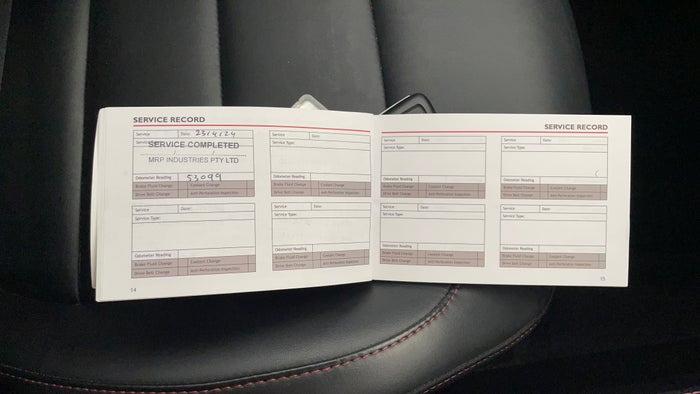 SERVICE RECORD
Service Date: 23/4/24
Service
SERVICE COMPLETED
MRP INDUSTRIES PTY LTD
Odometer Reading 53099
Brake Fluid Change Coolant Change
Drive Belt Change Anti-Perforation Inspection
Service Date:
Service Type:
Odometer Reading
Brake Fluid Change Coolant Change
Drive Belt Change Anti-Perforation Inspection
Service Date:
Service Type:
Odometer Reading
Brake Fluid Change Coolant Change
Drive Belt Change Anti-Perforation Inspection
Service Date:
Service Type:
Odometer Reading
Brake Fluid Change Coolant Change
Drive Belt Change Anti-Perforation Inspection
14
SERVICE RECORD
Service Date:
Service Type:
Odometer Reading
Brake Fluid Change Coolant Change
Drive Belt Change Anti-Perforation Inspection
Service Date:
Service Type:
Odometer Reading
Brake Fluid Change Coolant Change
Drive Belt Change Anti-Perforation Inspection
Service Date:
Service Type:
Odometer Reading
Brake Fluid Change Coolant Change
Drive Belt Change Anti-Perforation Inspection
Service Date:
Service Type:
Odometer Reading
Brake Fluid Change Coolant Change
Drive Belt Change Anti-Perforation Inspection
15